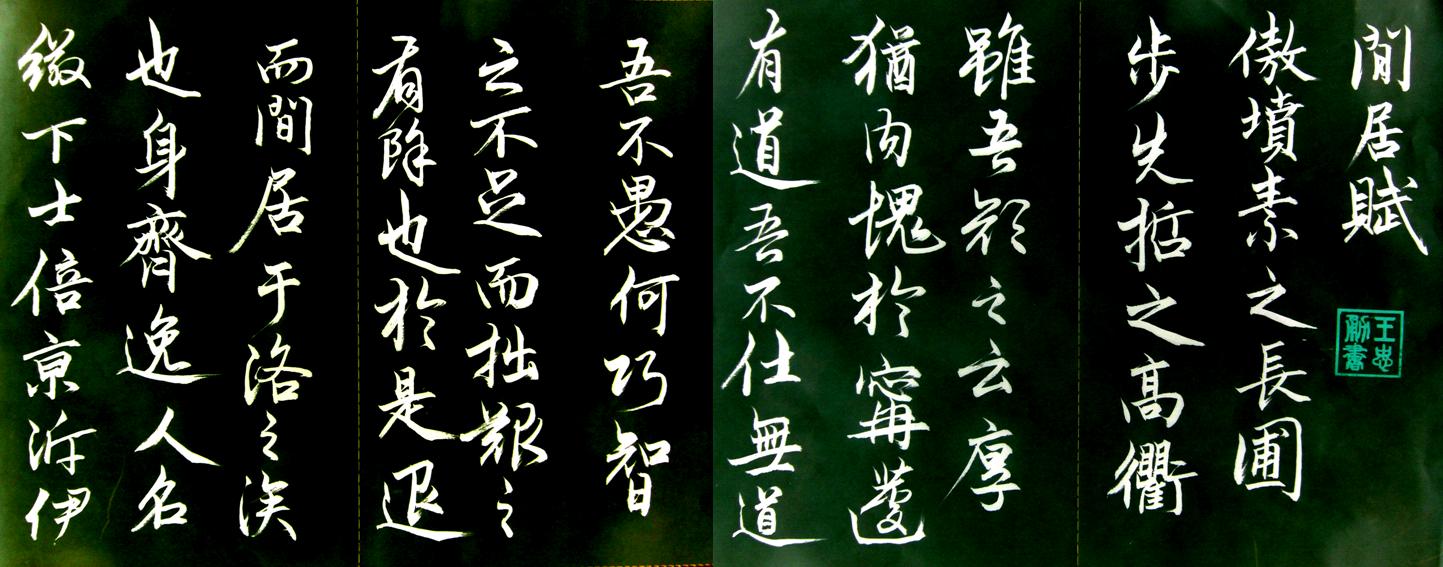 閒居賦
王忠勛書
傲墳素之長圃
步先哲之高衢
雖吾顏之云厚
猶內愧於甯蘧
有道吾不仕無道
吾不愚何巧智
之不足而拙艱之
有餘也於是退
而閒居于洛之涘
也身齊逸人名
綴下士倍京泝伊